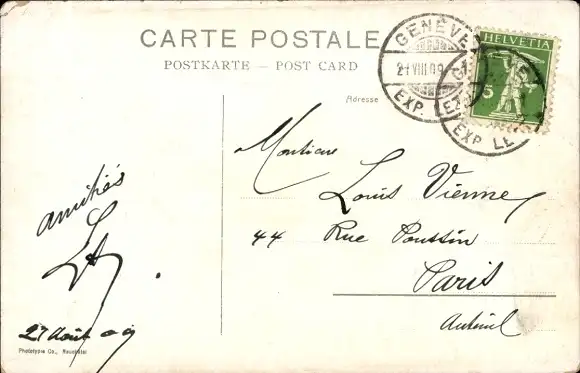 CARTE POSTALE
POSTKARTE – POST CARD
GENÈVE
21 VIII 09
EXP. LE
HELVETIA
5
EXP. LE
Adresse
Monsieur
Louis Vierne
44 Rue Poussin
Paris
Auteuil
amitiés
27 Août 09
Phototypie Co., Neuchâtel